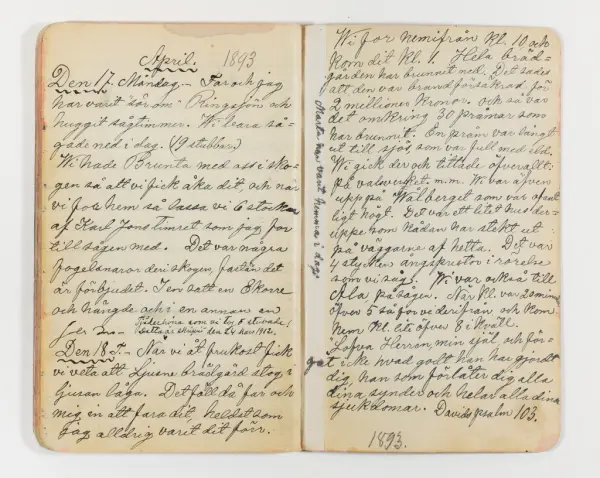 April. 1893
Den 17. Måndag. - Far och jag
har varit "sör om" Ringsjön och
huggit sågtimmer. Vi bara så-
gade ned i dag. (9 stubbar.)
Vi hade Brunta med oss i sko-
gen så att vi fick åka dit, och när
vi for hem så lassa vi 6 stockar
af Karl Jons timret som jag for
till sågen med. Det var några
fogelsnaror der i skogen, fastän det
är förbjudet. I en satt en Ekorre
och hängde och i en annan en
Detta är skrifvit den 24 dec 1912.
Den 18. T. - När vi åt frukost fick
vi veta att Ljusne brädgård stog i
ljusan låga. Det föll då far och
mig in att fara dit, heldst som
jag alldrig varit dit förr.
Vi for hemifrån kl. 10 och
kom dit kl. 1. Hela bräd-
gården har brunnit ned. Det sades
att den var brandförsäkrad för
2 millioner kronor. Och så var
det omkring 30 pråmar som
har brunnit. En pråm var långt
ut till sjös som var full med eld.
Vi gick der och tittade öfverallt:
På valsverket. m.m. Vi var äfven
uppå "Wålberget" som var
ligt högt. Det var ett litet hus der-
uppe som hade
på väggarne af hetta. Det var
4 stycken ångsprutor i rörelse
som vi såg. Vi var också till
Ala på sågen. När kl. var
öfver 5 så for vi derifrån och kom
hem kl. lite öfver 8 i kväll.
"Lofva Herran, min själ och för-
gät icke hvad godt han har gjordt
dig, han som förlåter dig alla
dina synder och helar alla dina
sjukdomar. Davids psalm 103.
1893.
har varit hemma i dag.